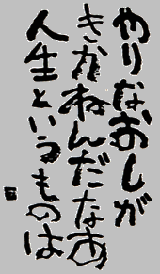 やりなおしが
きかねんだなあ
人生というものは